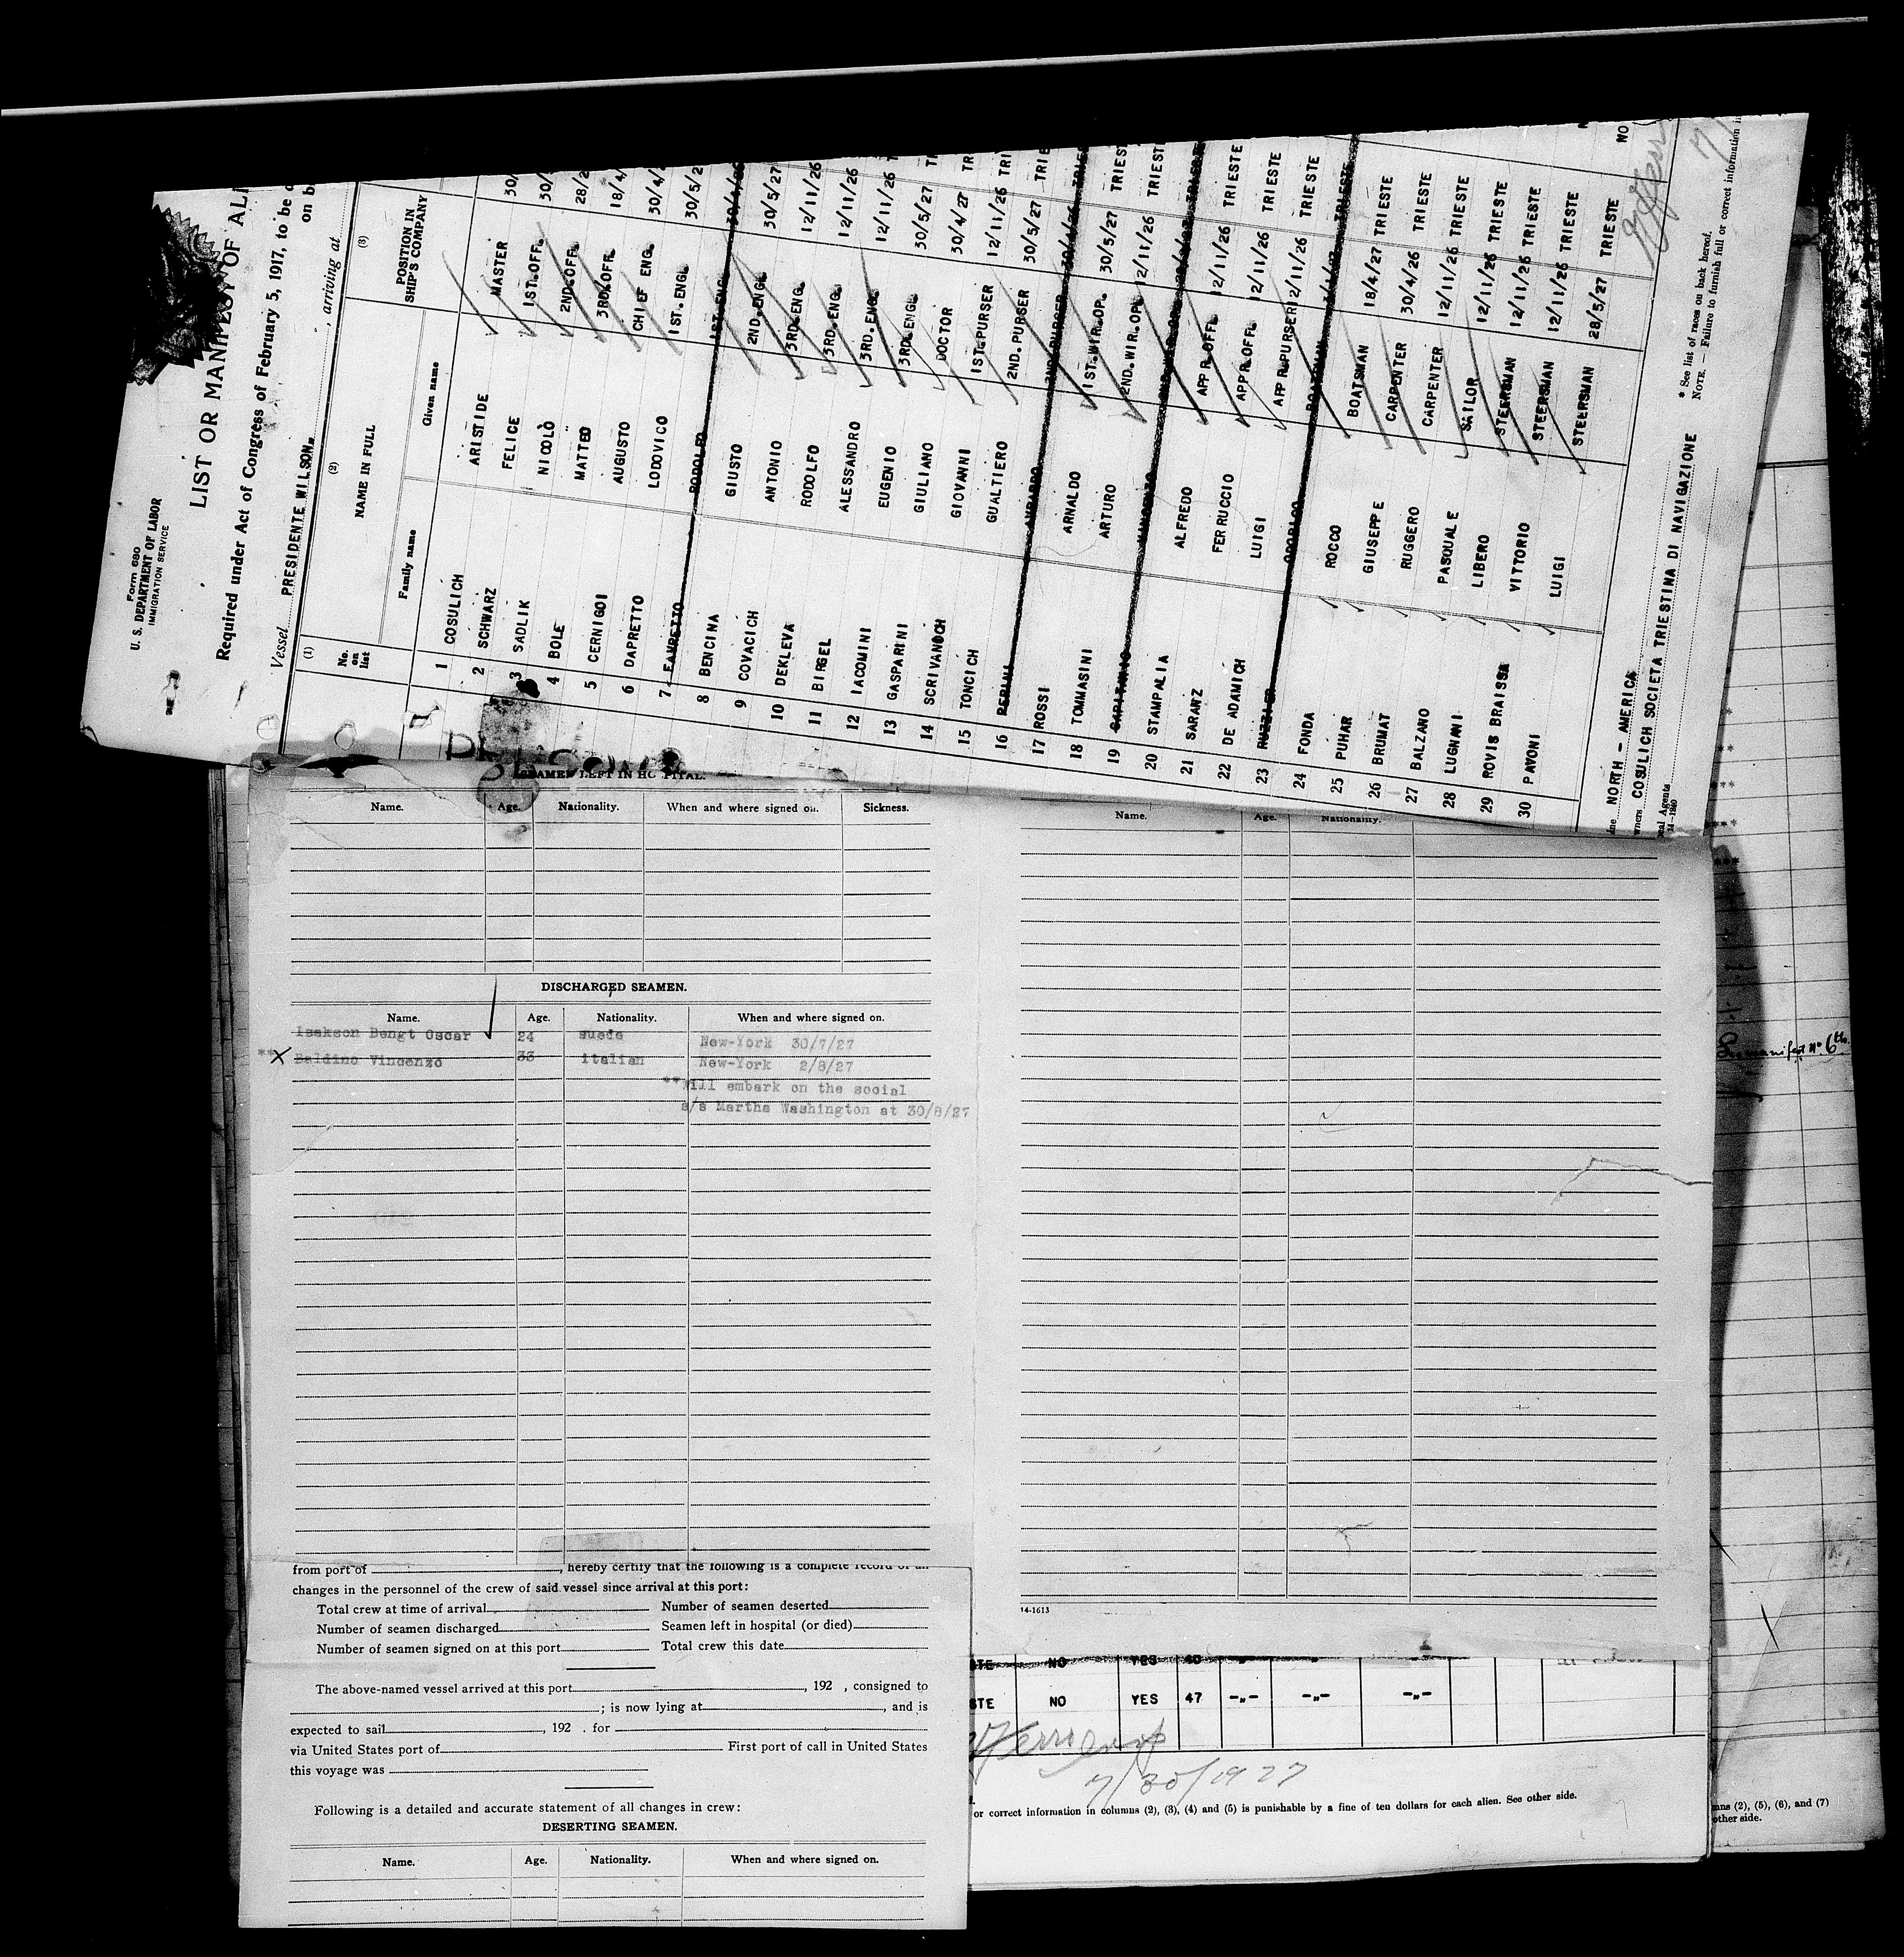 Form 680
U. S. DEPARTMENT OF LABOR
IMMIGRATION SERVICE
LIST OR MANIFEST OF
Required under Act of Congress of February 5, 1917, to be
on
Vessel PRESIDENTE WILSON. , arriving at
(1) (2) (3)
No. on list NAME IN FULL POSITION IN SHIP'S COMPANY
Family name Given name
1 COSULICH ARISTIDE MASTER
2 SCHWARZ FELICE 1ST.OFF.
3 SADLIK NICOLÒ 2ND.OFF.
4 BOLE MATTEO 3RD.OFF.
5 CERNIGOI AUGUSTO CHIEF ENG.
6 DAPRETTO LODOVICO 1ST.ENG.
7 RODOLFO 1ST.ENG.
8 BENCINA GIUSTO 2ND.ENG. 30/5/27
9 COVACICH ANTONIO 3RD.ENG. 12/11/26
10 DEKLEVA RODOLFO 3RD.ENG. 12/11/26
11 BIRGEL ALESSANDRO 3RD.ENG. 12/11/26
12 IACOMINI EUGENIO 3RD.ENG. 30/5/27
13 GASPARINI GIULIANO DOCTOR 30/4/27
14 SCRIVANICH GIOVANNI 1ST.PURSER 12/11/26
15 TONCICH GUALTIERO 2ND.PURSER 30/5/27
16 2ND.PURSER 30/4/26
17 ROSSI ARNALDO 1ST.WIR.OP. 30/5/27 TRIESTE
18 TOMMASINI ARTURO 2ND.WIR.OP. 12/11/26 TRIESTE
19
20 STAMPALIA ALFREDO APPR.OFF. 12/11/26 TRIESTE
21 SARANZ FERRUCCIO APPR.OFF. 12/11/26 TRIESTE
22 DE ADAMICH LUIGI APPR.PURSER 12/11/26 TRIESTE
23 RUZZIER ODORICO BOATSMAN TRIESTE
24 FONDA ROCCO BOATSMAN 18/4/27 TRIESTE
25 PUHAR GIUSEPPE CARPENTER 30/4/26 TRIESTE
26 BRUMAT RUGGERO CARPENTER 12/11/26 TRIESTE
27 BALZANO PASQUALE SAILOR 12/11/26 TRIESTE
28 LUGNANI LIBERO STEERSMAN 12/11/26 TRIESTE
29 ROVIS BRAISSA VITTORIO STEERSMAN 12/11/26 TRIESTE
30 PAVONI LUIGI STEERSMAN 28/5/27 TRIESTE NO
NORTH - AMERICA * See list of races on back hereof.
COSULICH SOCIETA TRIESTINA DI NAVIGAZIONE NOTE. — Failure to furnish full or correct information
Agents
SEAMEN LEFT IN HOSPITAL.
Name. Age. Nationality. When and where signed on. Sickness.
Name. Age. Nationality.
DISCHARGED SEAMEN.
Name. Age. Nationality. When and where signed on.
Isakson Bengt Oscar 24 suede New-York 30/7/27
** X Baldino Vincenzo 33 italian New-York 2/8/27
** Will embark on the social
s/s Martha Washington at 30/8/27
manifest n° 6th
14-1613
from port of , hereby certify that the following is a complete record of all
changes in the personnel of the crew of said vessel since arrival at this port:
Total crew at time of arrival Number of seamen deserted
Number of seamen discharged Seamen left in hospital (or died)
Number of seamen signed on at this port Total crew this date
The above-named vessel arrived at this port , 192 , consigned to
; is now lying at , and is
expected to sail , 192 . for
via United States port of First port of call in United States
this voyage was
Following is a detailed and accurate statement of all changes in crew:
DESERTING SEAMEN.
Name. Age. Nationality. When and where signed on.
STE NO YES 47 -"- -"- -"-
7/30/1927
or correct information in columns (2), (3), (4) and (5) is punishable by a fine of ten dollars for each alien. See other side.
(2), (5), (6), and (7)
other side.